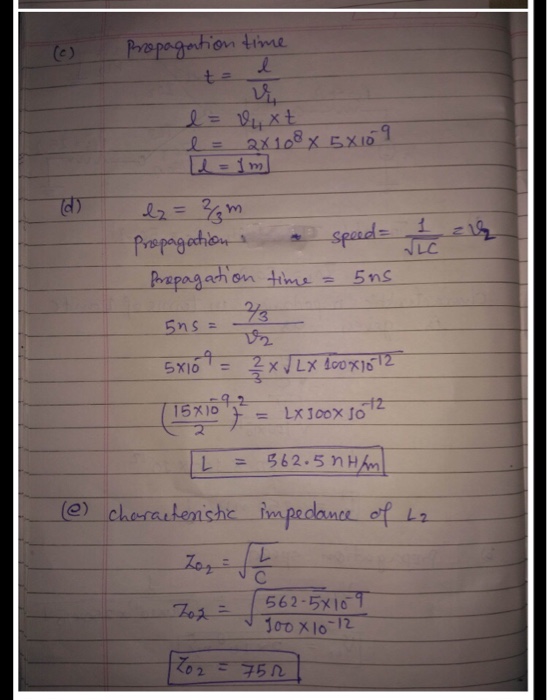 (c) Propagation time
t = l / v_L1
l = v_L1 × t
l = 2×10^8 × 5×10^-9
l = 1m
(d) l2 = 2/3 m
Propagation speed = 1/√LC = v2
Propagation time = 5ns
5ns = (2/3) / v2
5×10^-9 = 2/3 × √(L×100×10^-12)
(15×10^-9 / 2)^2 = L×100×10^-12
L = 562.5 nH/m
(e) characteristic impedance of L2
Z02 = √(L/C)
Z02 = √(562.5×10^-9 / 100×10^-12)
Z02 = 75Ω